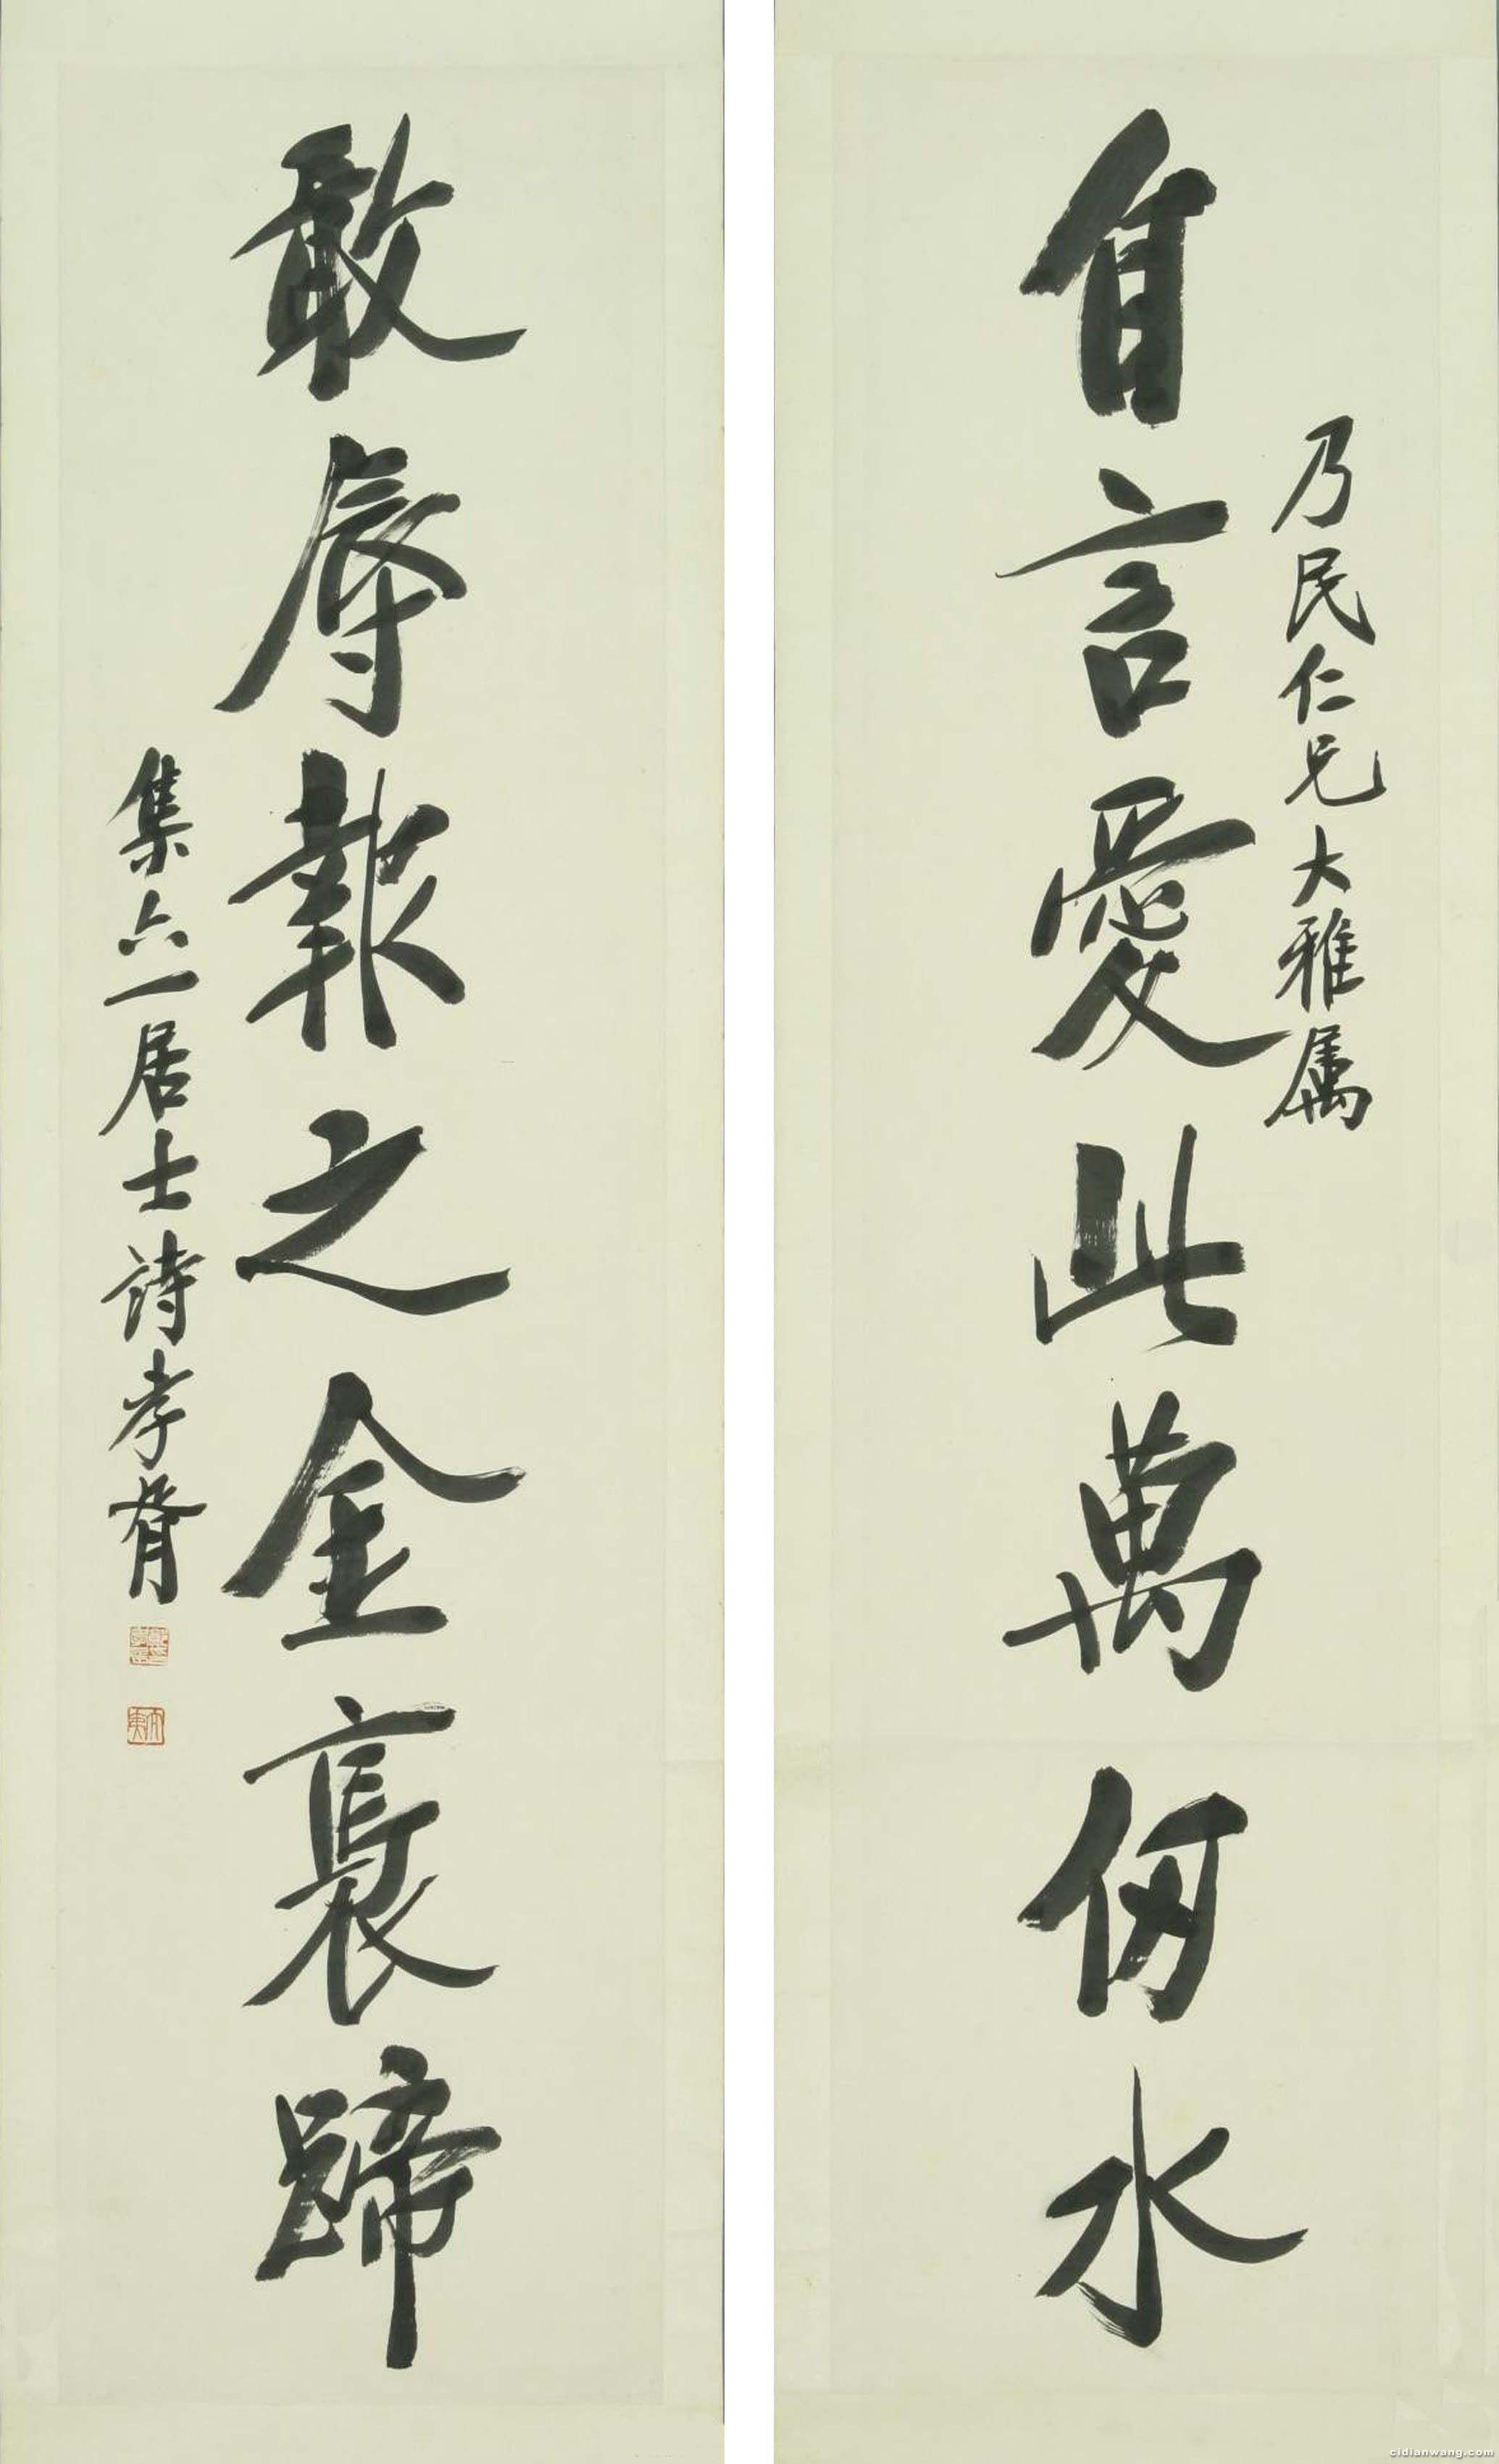 乃民仁兄大雅属
自言愛此萬仞水
敢辱報之金褭蹄
集六一居士詩孝胥
cidianwang.com